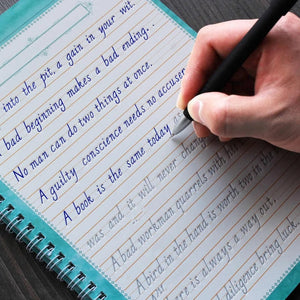 into the pit, a gain in your wit.
A bad beginning makes a bad ending...
No man can do two things at once.
A guilty conscience needs no accuser
A book is the same today as
was and it will never chang
A bad workman quarrels with
A bird in the hand is worth two in the
is always a way out.
diligence bring luck.